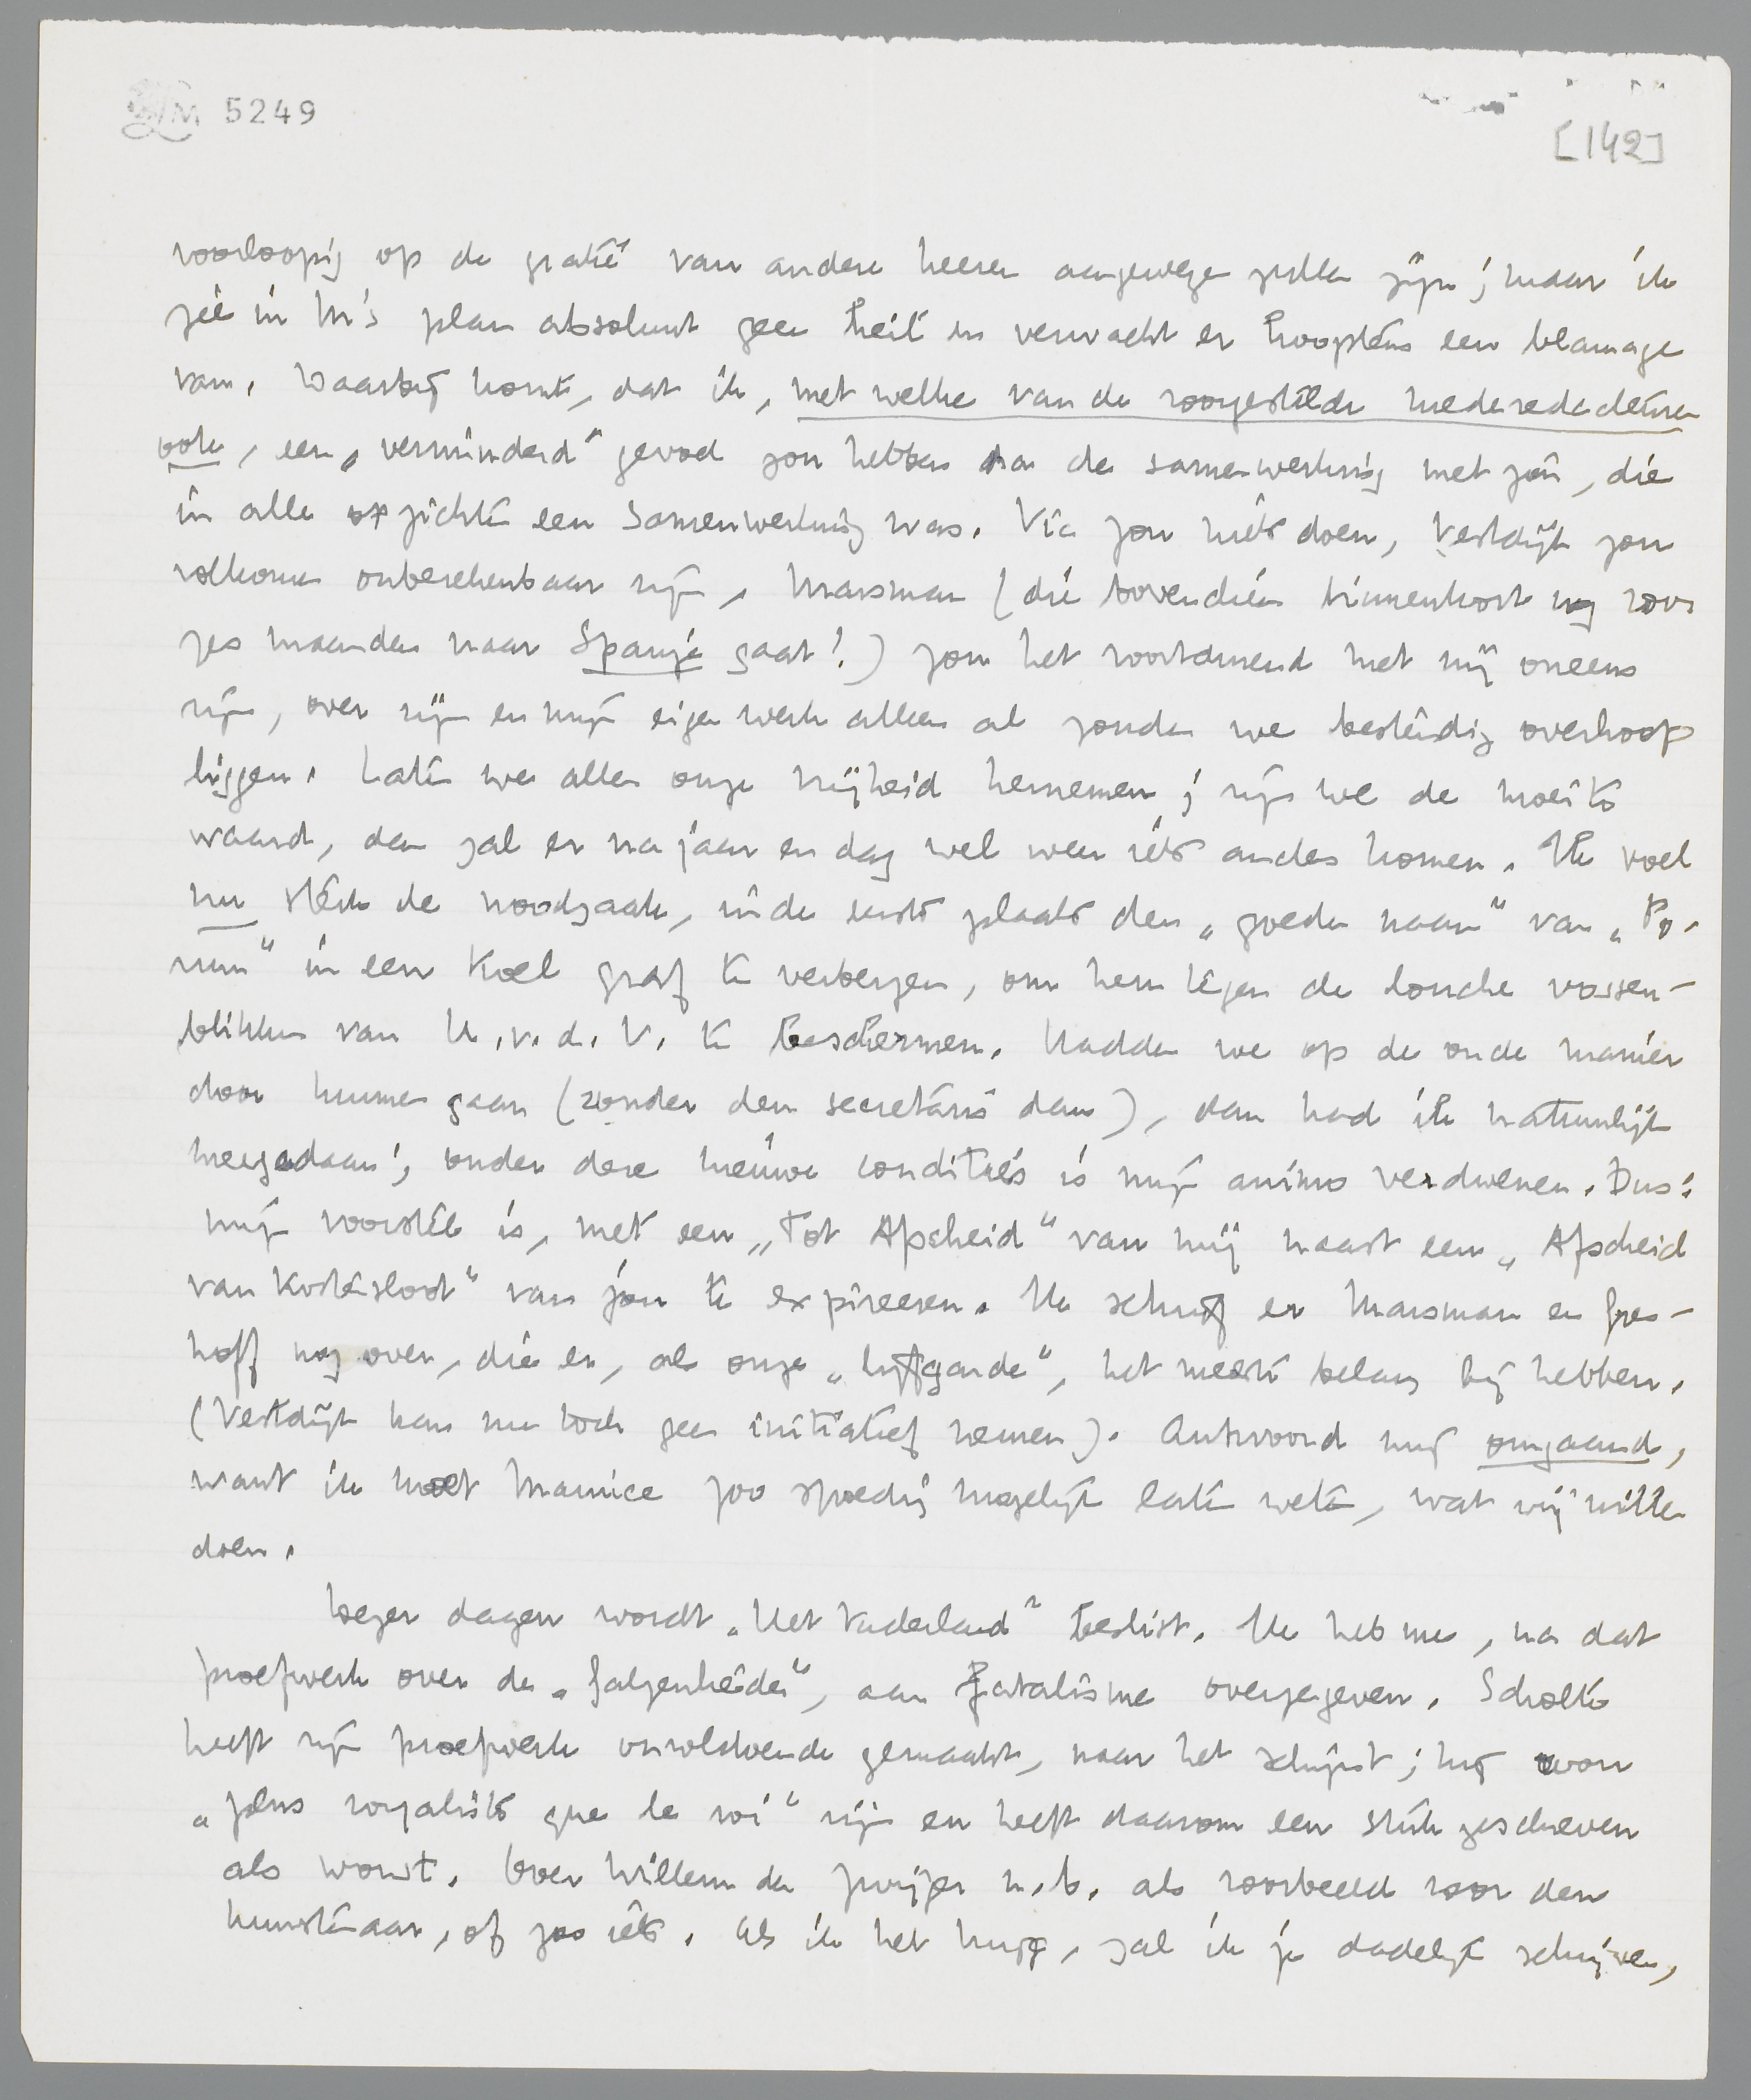 LM 5249
[142]
voorloopig op de gratie van andere heeren aangewezen zullen zijn; maar ik
zie in M's plan absoluut geen heil en verwacht er hoogstens een blamage
van. Waarbij komt, dat ik, met welke van de voorgestelde mederedacteuren
ook, een „verminderd" gevoel zou hebben na de samenwerking met jou, die
in alle opzichten een samenwerking was. Vic zou niets doen, Vestdijk zou
volkomen onberekenbaar zijn, Marsman (die bovendien binnenkort nog voor
zes maanden naar Spanje gaat!) zou het voortdurend met mij oneens
zijn, over zijn en mijn eigen werk alleen al zouden we bestendig overhoop
liggen. Laten we allen onze vrijheid hernemen; zijn we de moeite
waard, dan zal er na jaar en dag wel weer iets anders komen. Ik voel
nu sterk de noodzaak, in de eerste plaats den „goeden naam" van „Fo-
rum" in een koel graf te verbergen, om hem tegen de louche vossen-
blikken van K.v.d.V. te beschermen. Hadden we op de oude manier
door kunnen gaan (zonder den secretaris dan), dan had ik natuurlijk
meegedaan; onder deze nieuwe condities is mijn animo verdwenen. Dus:
mijn voorstel is, met een „Tot Afscheid" van mij naast een „Afscheid
van Kostersloot" van jou te expireeren. Ik schrijf er Marsman en Gres-
hoff nog over, die er, als onze „lijfgarde", het meeste belang bij hebben.
(Vestdijk kan nu toch geen initiatief nemen). Antwoord mij omgaand,
want ik moet Maurice zoo spoedig mogelijk laten weten, wat wij willen
doen.
Dezer dagen wordt „Het Vaderland" beslist. Ik heb me, na dat
proefwerk over de „Galgenlieder", aan fatalisme overgegeven. Scholte
heeft zijn proefwerk onvoldoende gemaakt, naar het schijnt; hij wou
„plus royaliste que le roi" zijn en heeft daarom een stuk geschreven
als worst. Over Willem de Zwijger n.b. als voorbeeld voor den
kunstenaar, of zoo iets. Als ik het krijg, zal ik je dadelijk schrijven,